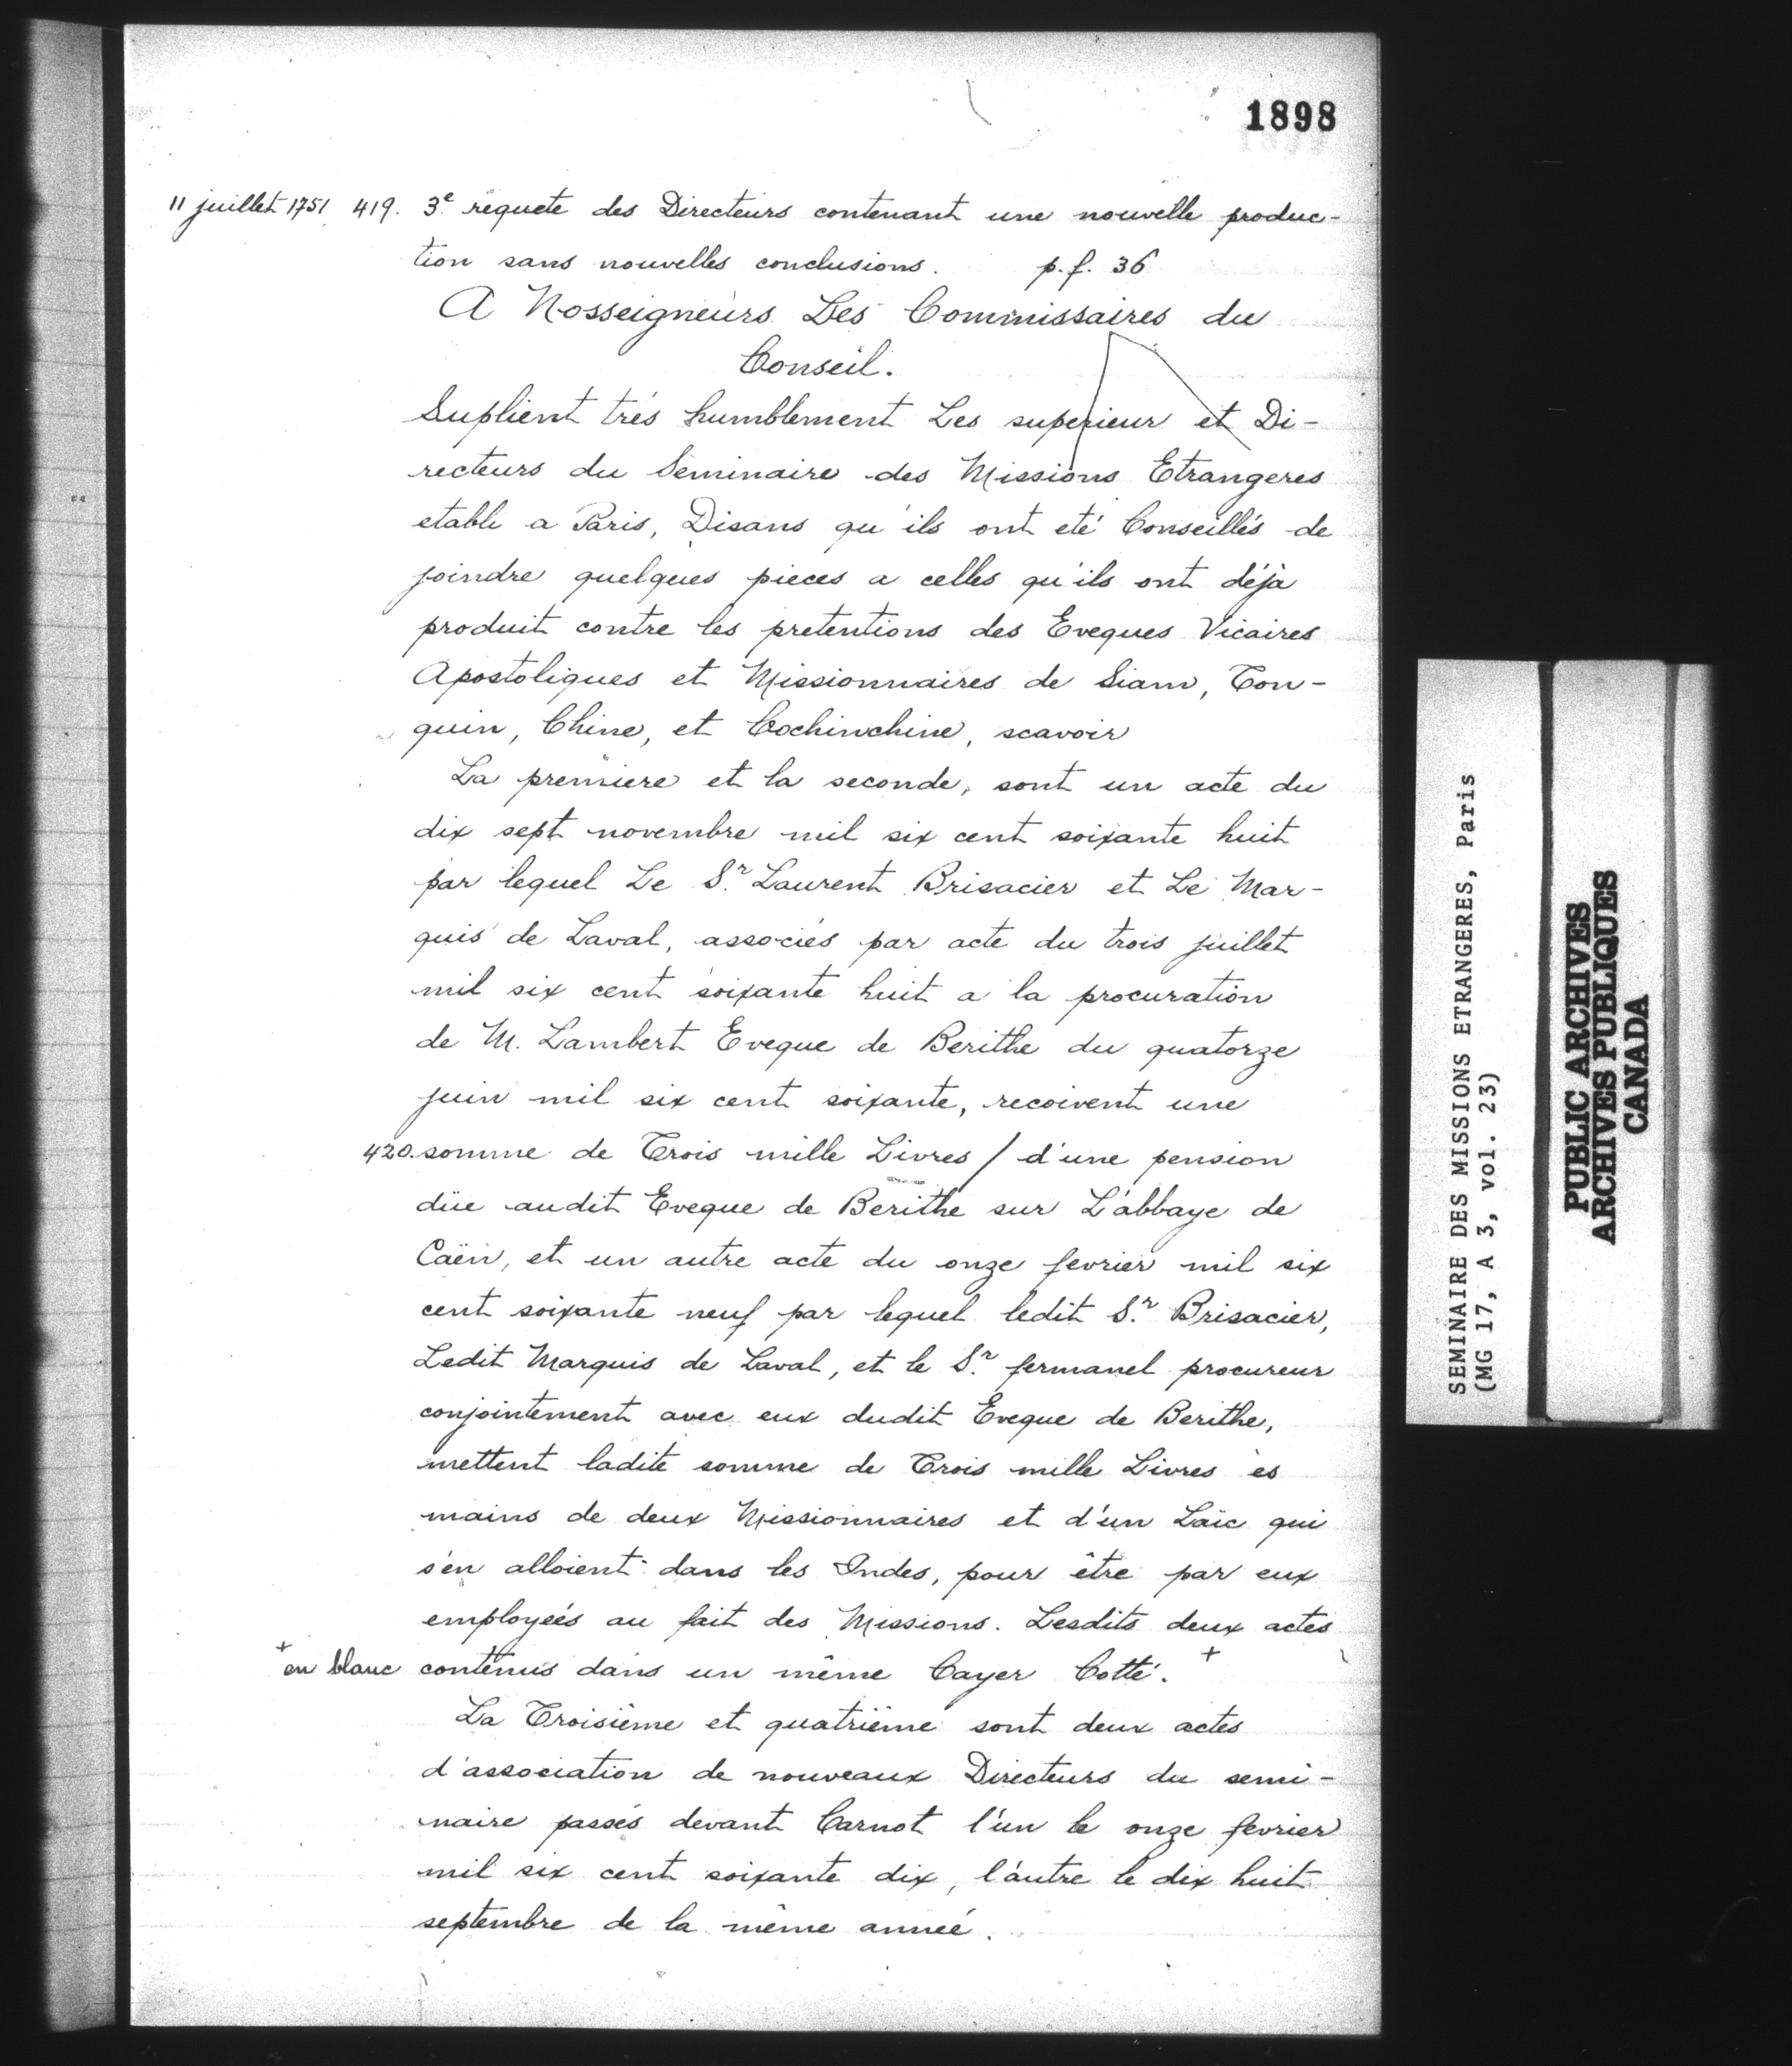 1898
11 juillet 1751 419. 3e requete des Directeurs contenant une nouvelle produc-
tion sans nouvelles conclusions. p.f. 36
A Nosseigneurs Les Commissaires du
Conseil.
Suplient trés humblement Les superieur et Di-
recteurs du Seminaire des Missions Etrangeres
etabli a Paris, Disans qu'ils ont eté Conseillés de
joindre quelques pieces a celles qu'ils ont déjà
produit contre les pretentions des Eveques Vicaires
Apostoliques et Missionnaires de Siam, Ton-
quin, Chine, et Cochinchine, scavoir
La premiere et la seconde, sont un acte du
dix sept novembre mil six cent soixante huit
par lequel Le Sr. Laurent Brisacier et Le Mar-
quis de Laval, associés par acte du trois juillet
mil six cent soixante huit a la procuration
de M. Lambert Eveque de Berithe du quatorze
juin mil six cent soixante, recoivent une
420. somme de Trois mille Livres / d'une pension
düe audit Eveque de Berithe sur L'abbaye de
Caën, et un autre acte du onze fevrier mil six
cent soixante neuf par lequel ledit Sr. Brisacier,
Ledit Marquis de Laval, et le Sr. fermanel procureur
conjointement avec eux dudit Eveque de Berithe,
mettent ladite somme de Trois mille Livres ès
mains de deux Missionnaires et d'un Laïc qui
s'en alloient dans les Indes, pour être par eux
employeés au fait des Missions. Lesdits deux actes
+ en blanc contenus dans un même Cayer Cotté. +
La Troisiême et quatriême sont deux actes
d'association de nouveaux Directeurs du semi-
naire passés devant Carnot l'un le onze fevrier
mil six cent soixante dix, l'autre le dix huit
septembre de la même anneé.
SEMINAIRE DES MISSIONS ETRANGERES, Paris
(MG 17, A 3, vol. 23)
PUBLIC ARCHIVES
ARCHIVES PUBLIQUES
CANADA